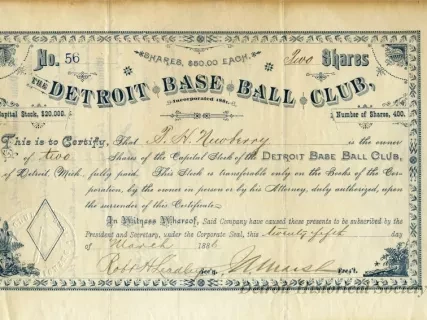 No. 56
SHARES, $50.00 EACH.
Two Shares
THE DETROIT BASE BALL CLUB,
Incorporated 1881.
Capital Stock, $20.000.
Number of Shares, 400.
This is to Certify, That T. H. Newberry is the owner
of two Shares of the Capital Stock of the DETROIT BASE BALL CLUB,
of Detroit, Mich. fully paid. This Stock is transferable only on the Books of the Cor-
poration, by the owner in person or by his Attorney, duly authorized, upon
the surrender of this Certificate.
In Witness Whereof, Said Company have caused these presents to be subscribed by the
President and Secretary, under the Corporate Seal, this twenty fifth day
of March 1886
Robt H. Sec'y. Marsh Pres't.
Detroit Historical Society